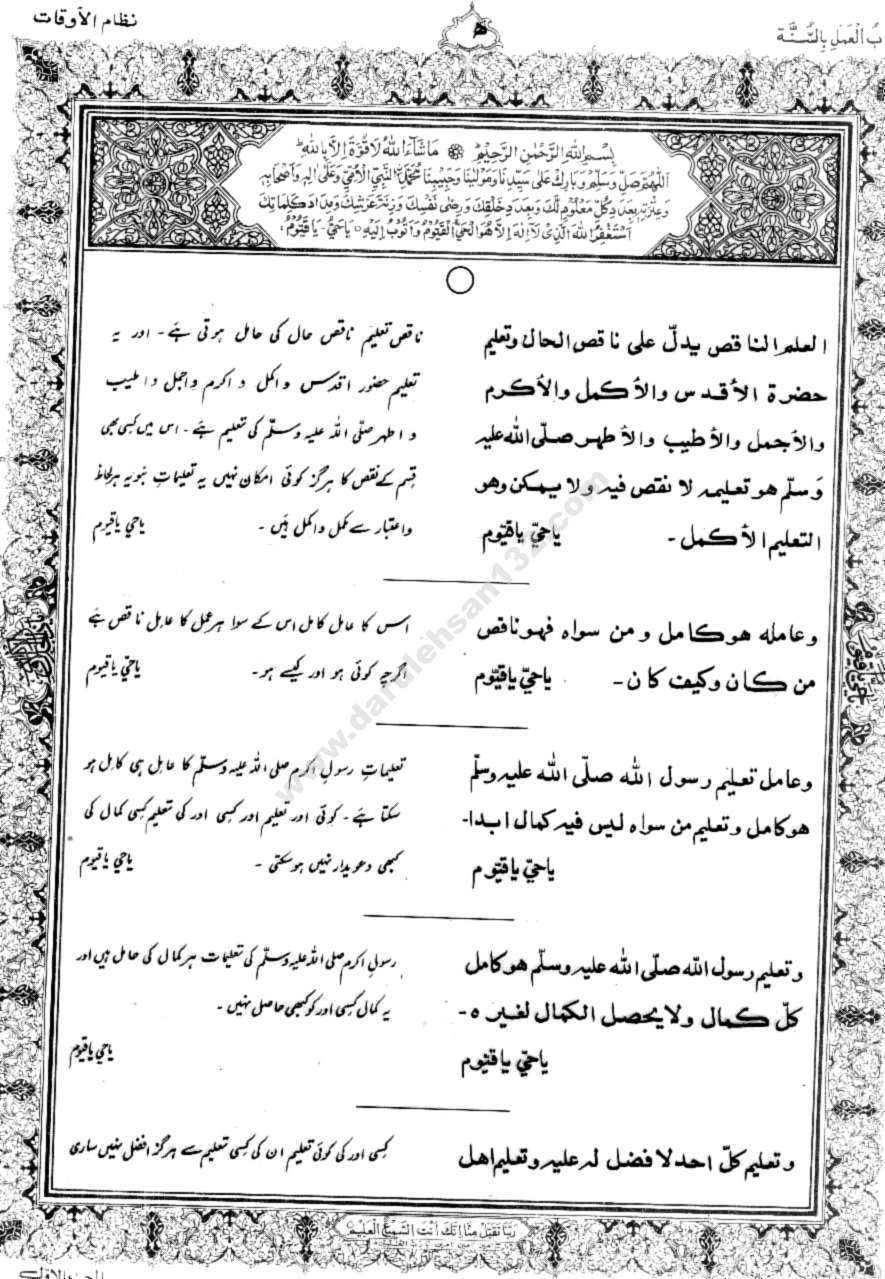 بُ الْعَمَلِ بِالسُّنَّة
نظام الأوقات
بِسْمِ اللهِ الرَّحْمٰنِ الرَّحِيْمِ مَاشَآءَ اللهُ لَا قُوَّةَ اِلَّا بِاللهِ
اَللّٰهُمَّ صَلِّ وَسَلِّمْ وَبَارِكْ عَلٰى سَيِّدِنَا وَمَوْلٰنَا وَحَبِيْبِنَا مُحَمَّدٍ النَّبِيِّ الْاُمِّيِّ وَعَلٰى اٰلِهٖ وَاَصْحَابِهٖ
وَعِتْرَتِهٖ بِعَدَدِ كُلِّ مَعْلُوْمٍ لَّكَ وَبِعَدَدِ خَلْقِكَ وَرِضٰى نَفْسِكَ وَزِنَةَ عَرْشِكَ وَمِدَادَ كَلِمَاتِكَ
اَسْتَغْفِرُ اللهَ الَّذِيْ لَا اِلٰهَ اِلَّا هُوَ الْحَيُّ الْقَيُّوْمُ وَاَتُوْبُ اِلَيْهِ ○ يَاحَيُّ۔ يَا قَيُّوْمُ
العلم الناقص يدلّ على ناقص الحال وتعليم
حضرة الأقدس والأكمل والأكرم
والأجمل والأطيب والأطهر صلّى الله عليه
وسلّم هو تعليمه لا نقص فيه ولا يمكن وهو
التعليم الأكمل - ياحيّ ياقيّوم
ناقص تعلیم ناقص حال کی حامل ہوتی ہے۔ اور یہ
تعلیم حضور اقدس و اکمل و اکرم و اجمل و اطیب
و اطہر صلّی اللہ علیہ وسلّم کی تعلیم ہے۔ اس میں کسی بھی
قسم کے نقص کا ہرگز کوئی امکان نہیں یہ تعلیماتِ نبویہ ہر لحاظ
و اعتبار سے مکمل و اکمل ہیں۔ یاحیّ یاقیوم
وعامله هو كامل ومن سواه فهو ناقص
من كان وكيف كان - ياحيّ ياقيّوم
اس کا عامل کامل اس کے سوا ہر عمل کا عامل ناقص ہے
اگرچہ کوئی ہو اور کیسے ہو۔ یاحیّ یاقیوم
وعامل تعليم رسول الله صلّى الله عليه وسلّم
هو كامل وتعليم من سواه ليس فيه كمال ابدا-
ياحيّ ياقيّوم
تعلیماتِ رسولِ اکرم صلی اللہ علیہ وسلّم کا عامل ہی کامل ہو
سکتا ہے۔ کوئی اور تعلیم اور کسی اور کی تعلیم کسی کمال کی
کبھی دعویدار نہیں ہو سکتی۔ یاحیّ یاقیوم
وتعليم رسول الله صلّى الله عليه وسلّم هو كامل
كلّ كمال ولا يحصل الكمال لغيره -
ياحيّ ياقيّوم
رسولِ اکرم صلی اللہ علیہ وسلّم کی تعلیمات ہر کمال کی حامل ہیں اور
یہ کمال کسی اور کو کبھی حاصل نہیں۔
یاحیّ یاقیوم
وتعليم كلّ احد لا فضل له عليه وتعليم اهل
کسی اور کی کوئی تعلیم ان کی کسی تعلیم سے ہرگز افضل نہیں ساری
رَبَّنَا تَقَبَّلْ مِنَّا اِنَّكَ اَنْتَ السَّمِيْعُ الْعَلِيْمُ